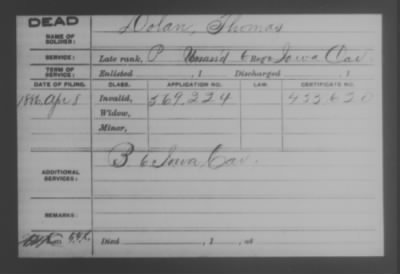 DEAD
NAME OF SOLDIER: Dolan, Thomas
SERVICE: Late rank, P Unass'd 6 Reg't Iowa Cav.
TERM OF SERVICE: Enlisted , 1 Discharged , 1
DATE OF FILING. CLASS. APPLICATION NO. LAW. CERTIFICATE NO.
1886 Apr 8 Invalid, 569.224 433.620
Widow,
Minor,
ADDITIONAL SERVICES: B 6 Iowa Cav.
REMARKS:
Died , 1 , at